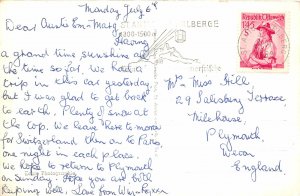 Monday July 6th
Dear Auntie Em - Marg
Having
a grand time sunshine all
the time so far. We had a
trip in this car yesterday
but I was glad to get back
to earth. Plenty of snow at
the top. We leave here tomorrow
for Switzerland then on to Paris,
one night in each place.
We hope to return to Plymouth
on Sunday. Hope you are all
keeping well. Love from
LBERGE
1300-1500 m
Republik Österreich
1.45
Mrs Miss Gill
29 Salisbury Terrace,
Milehouse,
Plymouth
Devon
England